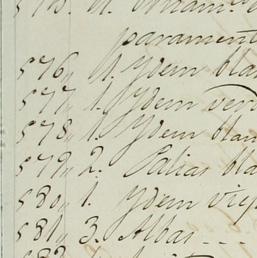 575. U. Ornam.
parament
576,, U. Ydem blan
577,, 1. Ydem verd
578,, 1. Ydem blan
579,, 2. Palias bla
580,, 1. Ydem viej
581,, 3. Albas - - -
582